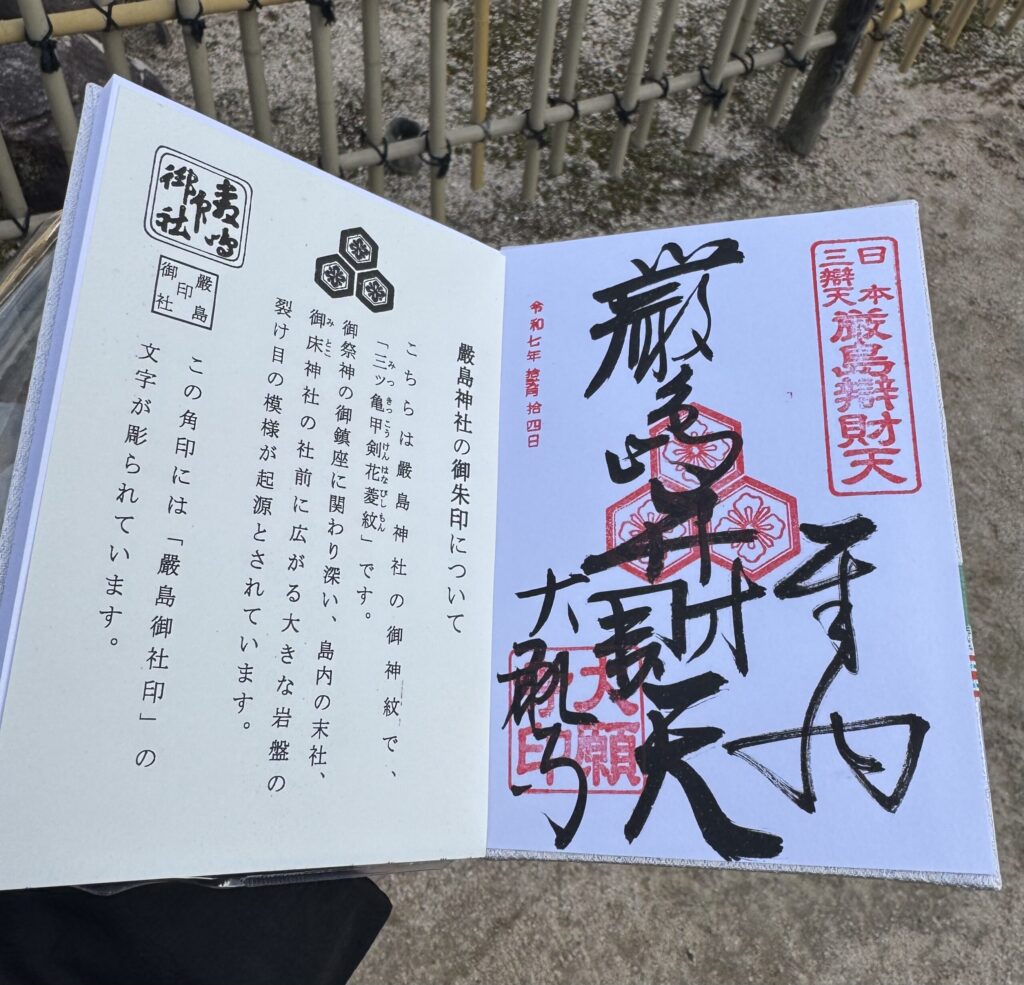 日本
三辯天
厳島辯財天
奉拝
厳島弁財天
大願寺
大願
寺印
令和七年
拾四日
嚴島神社の御朱印について
こちらは嚴島神社の御神紋で、
「三ッ亀甲剣花菱紋」です。
みつきっこうけんはなびしもん
御祭神の御鎮座に関わり深い、島内の末社、
御床神社の社前に広がる大きな岩盤の
みとこ
裂け目の模様が起源とされています。
嚴島
御印社
この角印には「嚴島御社印」の
文字が彫られています。